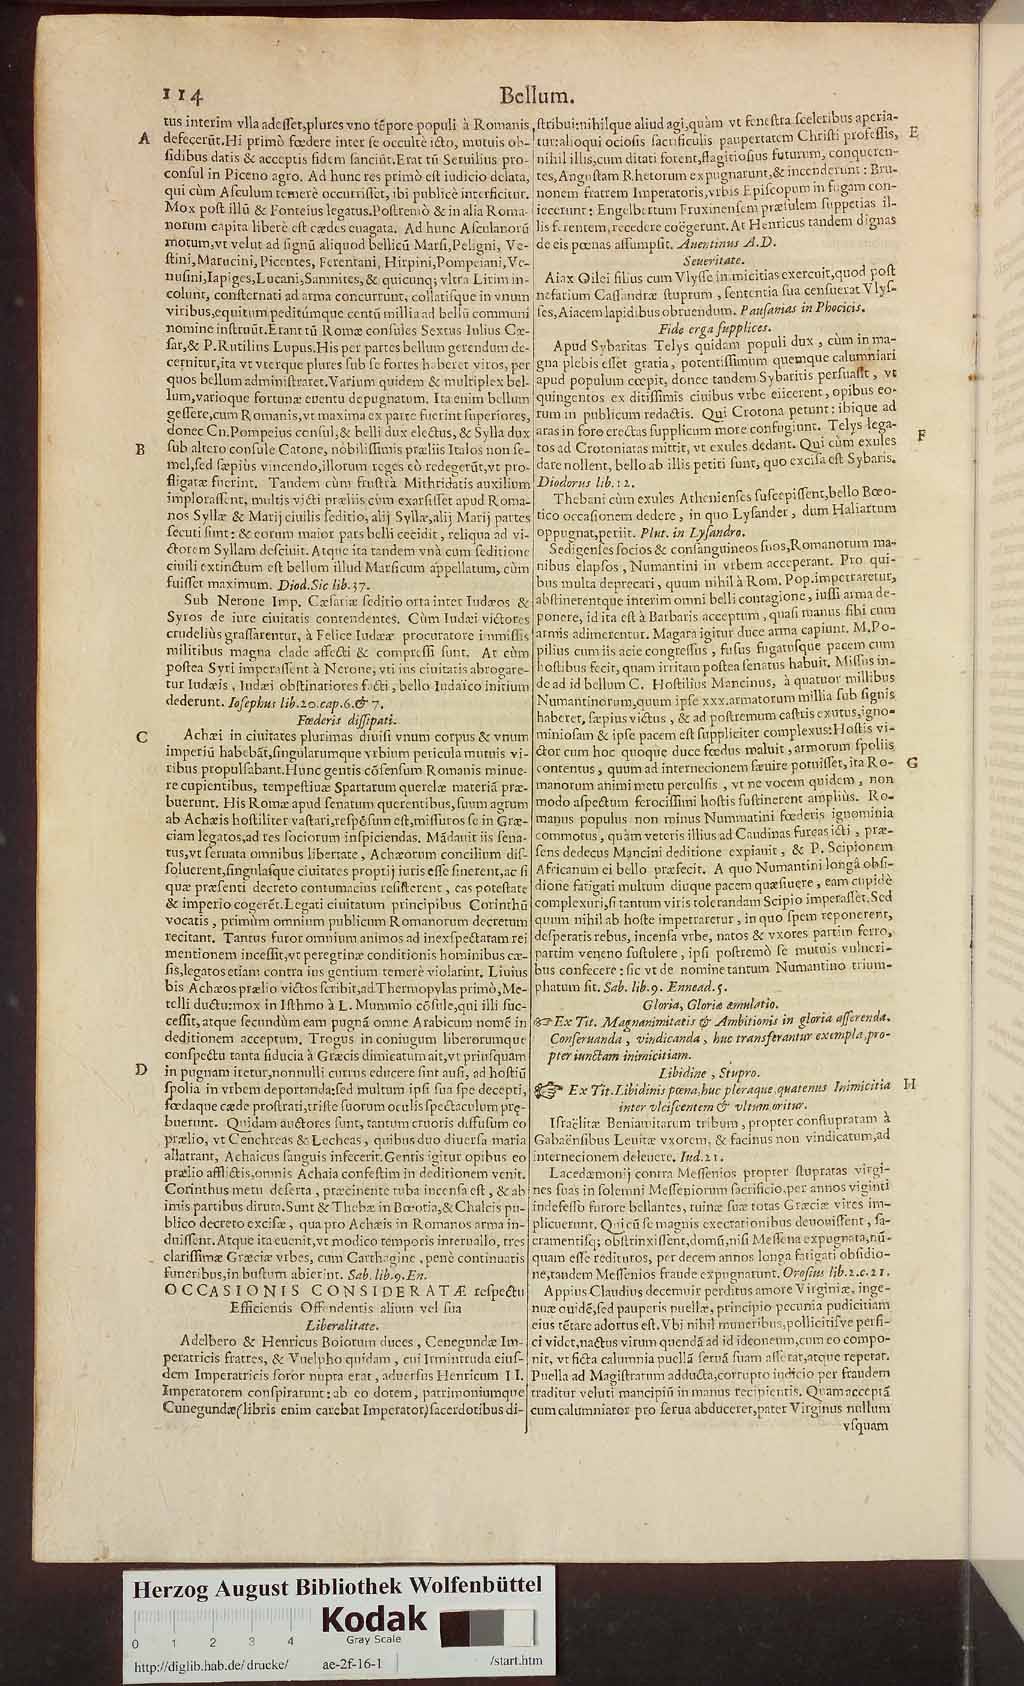 114
Bellum.
tus interim vlla adesset, plures vno tẽpore populi à Romanis
A
defecerũt. Hi primò fœdere inter se occultè icto, mutuis ob-
sidibus datis & acceptis fidem sanciũt. Erat tũ Seruilius pro-
consul in Piceno agro. Ad hunc res primò est iudicio delata,
qui cùm Asculum temerè occurrisset, ibi publicè interficitur.
Mox post illũ & Fonteius legatus. Postremò & in alia Roma-
norum capita liberè est cædes euagata. Ad hunc Asculanorũ
motum, vt velut ad signũ aliquod bellicũ Marsi, Peligni, Ve-
stini, Marucini, Picentes, Ferentani, Hirpini, Pompeiani, Ve-
nusini, Iapiges, Lucani, Samnites, & quicunq; vltra Lirim in-
colunt, consternati ad arma concurrunt, collatisque in vnum
viribus, equitum peditúmque centũ millia ad bellũ communi
nomine instruũt. Erant tũ Romæ consules Sextus Iulius Cæ-
sar, & P. Rutilius Lupus. His per partes bellum gerendum de-
cernitur, ita vt vterque plures sub se fortes haberet viros, per
quos bellum administraret. Varium quidem & multiplex bel-
lum, varioque fortunæ euentu depugnatum. Ita enim bellum
gessere, cum Romanis, vt maxima ex parte fuerint superiores,
donec Cn. Pompeius consul, & belli dux electus, & Sylla dux
B
sub altero consule Catone, nobilissimis præliis Italos non se-
mel, sed sæpiùs vincendo, illorum reges eò redegerũt, vt pro-
fligatæ fuerint. Tandem cùm frustrà Mithridatis auxilium
implorassent, multis victi præliis cùm exarsisset apud Roma-
nos Syllæ & Marij ciuilis seditio, alij Syllæ, alij Marij partes
secuti sunt: & eorum maior pars belli cecidit, reliqua ad vi-
ctorem Syllam desciuit. Atque ita tandem vnà cum seditione
ciuili extinctum est bellum illud Marsicum appellatum, cùm
fuisset maximum. Diod. Sic lib. 37.
Sub Nerone Imp. Cæsariæ seditio orta inter Iudæos &
Syros de iure ciuitatis contendentes. Cùm Iudæi victores
crudeliùs grassarentur, à Felice Iudææ procuratore immissis
militibus magna clade affecti & compressi sunt. At cùm
postea Syri imperassent à Nerone, vti ius ciuitatis abrogare-
tur Iudæis, Iudæi obstinatiores facti, bello Iudaico initium
dederunt. Iosephus lib. 20. cap. 6. & 7.
Fœderis dissipati.
C
Achæi in ciuitates plurimas diuisi vnum corpus & vnum
imperiũ habebãt, singularumque vrbium pericula mutuis vi-
ribus propulsabant. Hunc gentis cõsensum Romanis minue-
re cupientibus, tempestiuæ Spartarum querelæ materiã præ-
buerunt. His Romæ apud senatum querentibus, suum agrum
ab Achæis hostiliter vastari, respõsum est, missuros se in Græ-
ciam legatos, ad res sociorum inspiciendas. Mãdauit iis sena-
tus, vt seruata omnibus libertate, Achæorum concilium dis-
soluerent, singulasque ciuitates proprij iuris esse sinerent, ac si
quæ præsenti decreto contumacius resisterent, eas potestate
& imperio cogerẽt. Legati ciuitatum principibus Corinthũ
vocatis, primùm omnium publicum Romanorum decretum
recitant. Tantus furor omnium animos ad inexspectatam rei
mentionem incessit, vt peregrinæ conditionis hominibus cæ-
sis, legatos etiam contra ius gentium temerè violarint. Liuius
bis Achæos prælio victos scribit, ad Thermopylas primò, Me-
telli ductu: mox in Isthmo à L. Mummio cõsule, qui illi suc-
cessit, atque secundùm eam pugnã omne Arabicum nomẽ in
deditionem acceptum. Trogus in coniugum liberorumque
conspectu tanta fiducia à Græcis dimicatum ait, vt priusquam
D
in pugnam itetur, nonnulli currus educere sint ausi, ad hostiũ
spolia in vrbem deportanda: sed multum ipsi sua spe decepti,
fœdaque cæde prostrati, triste suorum oculis spectaculum prę-
buerunt. Quidam auctores sunt, tantum cruoris diffusum eo
prælio, vt Cenchreas & Lecheas, quibus duo diuersa maria
allatrant, Achaicus sanguis infecerit. Gentis igitur opibus eo
prælio afflictis, omnis Achaia confestim in deditionem venit.
Corinthus metu deserta, præcinente tuba incensa est, & ab
imis partibus diruta. Sunt & Thebæ in Bœotia, & Chalcis pu-
blico decreto excisæ, qua pro Achæis in Romanos arma in-
duissent. Atque ita euenit, vt modico temporis interuallo, tres
clarissimæ Græciæ vrbes, cum Carthagine, penè continuatis
funeribus, in bustum abierint. Sab. lib. 9. En.
OCCASIONIS CONSIDERATÆ respectu
Efficientis Offendentis alium vel sua
Liberalitate.
Adelbero & Henricus Boiorum duces, Cenegundæ Im-
peratricis fratres, & Vuelpho quidam, cui Irmintruda eius-
dem Imperatricis soror nupta erat, aduersus Henricum II.
Imperatorem conspirarunt: ab eo dotem, patrimoniumque
Cunegundæ (libris enim carebat Imperator) sacerdotibus di-
stribui: nihilque aliud agi, quàm vt fenestra sceleribus aperia-
E
tur: alioqui ociosis sacrificulis paupertatem Christi professis,
nihil illis, cum ditati forent, flagitiosius futurum, conqueren-
tes, Angustam Rhetorum expugnarunt, & incenderunt: Bru-
nonem fratrem Imperatoris, vrbis Episcopum in fugam con-
iecerunt: Engelbertum Fruxinensem præsulem suppetias il-
lis ferentem, recedere coëgerunt. At Henricus tandem dignas
de eis pœnas assumpsit. Auentinus A.D.
Seueritate.
Aiax Oilei filius cum Vlysse inimicitias exercuit, quod post
nefarium Cassandræ stuprum, sententia sua censuerat Vlys-
ses, Aiacem lapidibus obruendum. Pausanias in Phocicis.
Fide erga supplices.
Apud Sybaritas Telys quidam populi dux, cùm in ma-
gna plebis esset gratia, potentissimum quemque calumniari
apud populum cœpit, donec tandem Sybaritis persuasit, vt
quingentos ex ditissimis ciuibus vrbe eiicerent, opibus eo-
rum in publicum redactis. Qui Crotona petunt: ibique ad
aras in foro erectas supplicum more confugiunt. Telys lega-
F
tos ad Crotoniatas mittit, vt exules dedant. Qui cùm exules
dare nollent, bello ab illis petiti sunt, quo excisa est Sybaris.
Diodorus lib. 12.
Thebani cùm exules Athenienses suscepissent, bello Bœo-
tico occasionem dedere, in quo Lysander, dum Haliartum
oppugnat, periit. Plut. in Lysandro.
Sedigenses socios & consanguineos suos, Romanorum ma-
nibus elapsos, Numantini in vrbem acceperant. Pro qui-
bus multa deprecari, quum nihil à Rom. Pop. impetraretur,
abstinerentque interim omni belli contagione, iussi arma de-
ponere, id ita est à Barbaris acceptum, quasi manus sibi cum
armis adimerentur. Magara igitur duce arma capiunt. M. Po-
pilius cum iis acie congressus, fusus fugatusque pacem cum
hostibus fecit, quam irritam postea senatus habuit. Missus in-
de ad id bellum C. Hostilius Mancinus, à quatuor millibus
Numantinorum, quum ipse xxx. armatorum millia sub signis
haberet, sæpius victus, & ad postremum castris exutus, igno-
miniosam & ipse pacem est suppliciter complexus: Hostis vi-
ctor cum hoc quoque duce fœdus maluit, armorum spoliis
G
contentus, quum ad internecionem sæuire potuisset, ita Ro-
manorum animi metu perculsis, vt ne vocem quidem, non
modo aspectum ferocissimi hostis sustinerent amplius. Ro-
manus populus non minus Nummatini fœderis ignominia
commotus, quàm veteris illius ad Caudinas furcas icti, præ-
sens dedecus Mancini deditione expiauit, & P. Scipionem
Africanum ei bello præfecit. A quo Numantini longâ obsi-
dione fatigati multum diuque pacem quæsiuere, eam cupidè
complexuri, si tantum viris tolerandam Scipio imperasset. Sed
quum nihil ab hoste impetraretur, in quo spem reponerent,
desperatis rebus, incensa vrbe, natos & vxores partim ferro,
partim veneno sustulere, ipsi postremò se mutuis vulneri-
bus confecere: sic vt de nomine tantum Numantino trium-
phatum sit. Sab. lib. 9. Ennead. 5.
Gloria, Gloriæ æmulatio.
☞ Ex Tit. Magnanimitatis & Ambitionis in gloria asserenda.
Conseruanda, vindicanda, huc transferantur exempla, pro-
pter iunctam inimicitiam.
Libidine, Stupro.
☞ Ex Tit. Libidinis pœna, huc pleraque quatenus Inimicitia
H
inter vlciscentem & vltum oritur.
Israëlitæ Beniamitarum tribum, propter constupratam à
Gabaënsibus Leuitæ vxorem, & facinus non vindicatum, ad
internecionem deleuere. Iud. 21.
Lacedæmonij contra Messenios propter stupratas virgi-
nes suas in solemni Messeniorum sacrificio, per annos viginti
indefesso furore bellantes, ruinæ suæ totas Græciæ vires im-
plicuerunt. Qui cũ se magnis execrationibus deuouissent, sa-
cramentisq; obstrinxissent, domũ, nisi Messena expugnata, nũ-
quam esse redituros, per decem annos longa fatigati obsidio-
ne, tandem Messenios fraude expugnarunt. Orosius lib. 1. c. 21.
Appius Claudius decemuir perditus amore Virginiæ, inge-
nuæ quidẽ, sed pauperis puellæ, principio pecunia pudicitiam
eius tẽtare adortus est. Vbi nihil muneribus, pollicitisve perfi-
ci videt, nactus virum quendã ad id ideoneum, cum eo compo-
nit, vt ficta calumnia puellã seruã suam asserat, atque repetat.
Puella ad Magistratum adducta, corrupto indicio per fraudem
traditur veluti mancipiũ in manus recipientis. Quam acceptã
cum calumniator pro serua abduceret, pater Virginus nullum
vsquam
Herzog August Bibliothek Wolfenbüttel
Kodak
Gray Scale
0 1 2 3 4
http://diglib.hab.de/drucke/ ae-2f-16-1 /start.htm